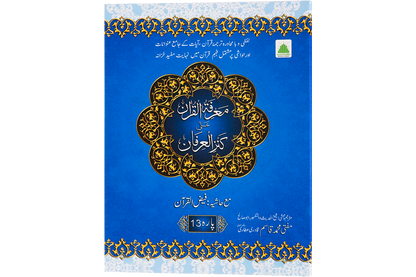 لفظی و بامحاورہ ترجمۂ قرآن، آیات کے جامع عنوانات
اور حواشی پر مشتمل فہم قرآن میں نہایت مفید خزانہ
معرفۃ القرآن
علی
کنز العرفان
مع حاشیہ: فیض القرآن
پارہ 13
مفتی محمد قاسم